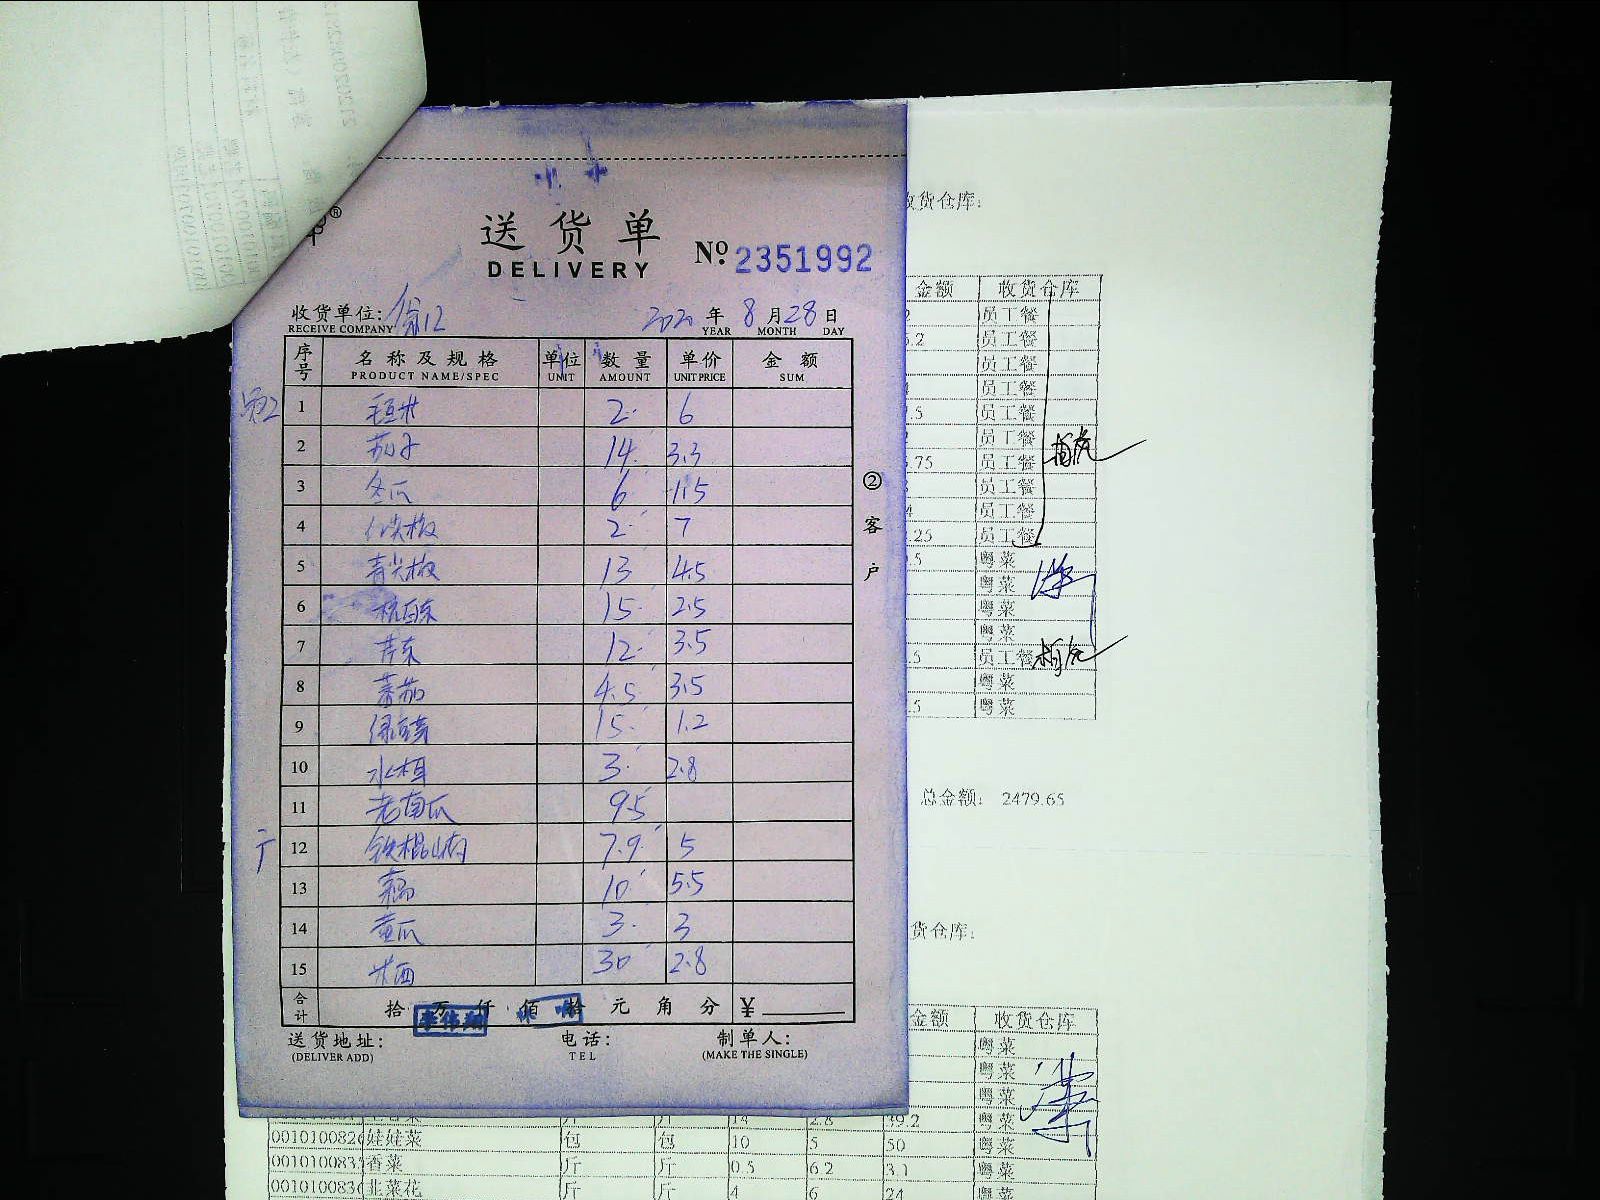 送货单
DELIVERY
№ 2351992
收货单位:
RECEIVE COMPANY
2020 年 8 月 28 日
YEAR MONTH DAY
序号 名称及规格 单位 数量 单价 金额
PRODUCT NAME/SPEC UNIT AMOUNT UNIT PRICE SUM
1 毛豆米 2 6
2 茄子 14 3.3
3 冬瓜 6 1.5
4 红尖椒 2 7
5 青尖椒 13 4.5
6 杭白菜 15 2.5
7 芹菜 12 3.5
8 蕃茄 4.5 3.5
9 绿豆芽 15 1.2
10 水木耳 3 2.8
11 老南瓜 95
12 铁棍山药 7.9 5
13 10 5.5
14 黄瓜 3 3
15 30 2.8
合计 拾 万 仟 佰 拾 元 角 分 ¥
李伟翔
送货地址:
(DELIVER ADD)
电话:
TEL
制单人:
(MAKE THE SINGLE)
②客户
收货仓库:
金额 收货仓库
员工餐
.2 员工餐
员工餐
员工餐
.5 员工餐
员工餐
.75 员工餐
员工餐
员工餐
.25 员工餐
.5 粤菜
粤菜
粤菜
粤菜
.5 员工餐
粤菜
.5 粤菜
总金额: 2479.65
货仓库:
金额 收货仓库
粤菜
粤菜
粤菜
斤 斤 14 2.8 39.2 粤菜
001010082 娃娃菜 包 包 10 5 50 粤菜
001010083 香菜 斤 斤 0.5 6.2 3.1 粤菜
001010083 韭菜花 斤 斤 4 6 24 粤菜